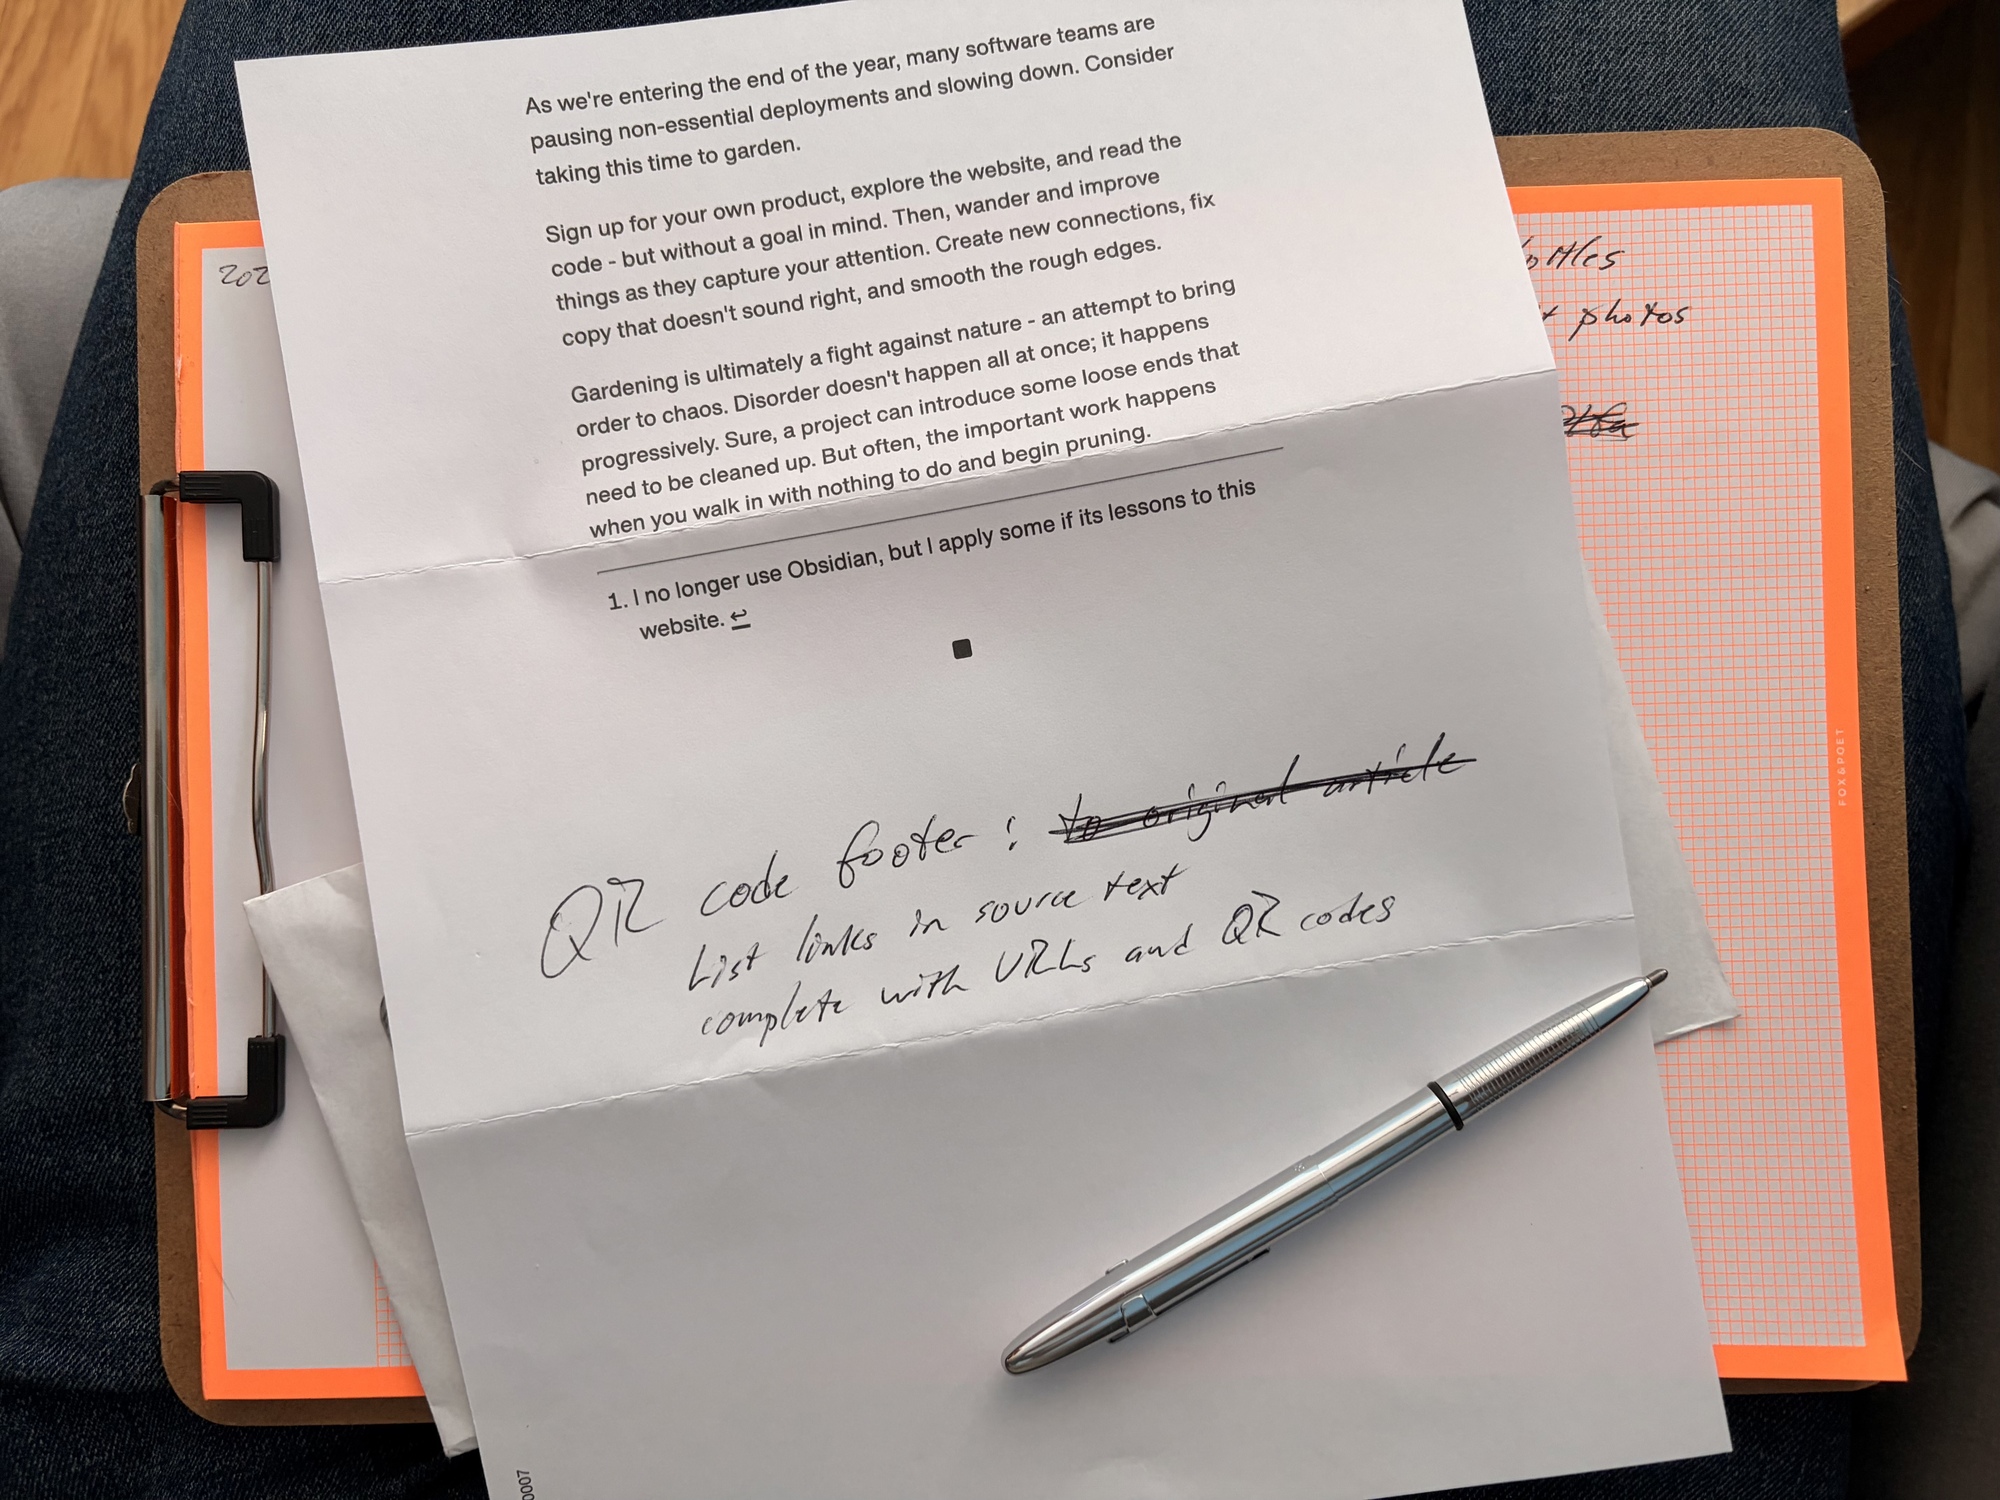 As we're entering the end of the year, many software teams are
pausing non-essential deployments and slowing down. Consider
taking this time to garden.
Sign up for your own product, explore the website, and read the
code - but without a goal in mind. Then, wander and improve
things as they capture your attention. Create new connections, fix
copy that doesn't sound right, and smooth the rough edges.
Gardening is ultimately a fight against nature - an attempt to bring
order to chaos. Disorder doesn't happen all at once; it happens
progressively. Sure, a project can introduce some loose ends that
need to be cleaned up. But often, the important work happens
when you walk in with nothing to do and begin pruning.
1. I no longer use Obsidian, but I apply some if its lessons to this
website. ↩
QR code footer: to original article
List links in source text
complete with URLs and QR codes
202
photos
FOX & POET
0007